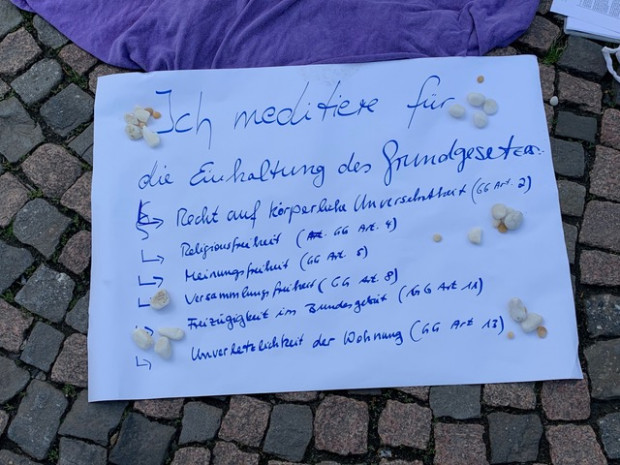 Ich meditiere für
die Einhaltung des Grundgesetzes:
Recht auf körperliche Unversehrtheit (GG Art. 2)
Religionsfreiheit (Art. GG Art. 4)
Meinungsfreiheit (GG Art. 5)
Versammlungsfreiheit (GG Art. 8)
Freizügigkeit im Bundesgebiet (GG Art 11)
Unverletzlichkeit der Wohnung (GG Art 13)